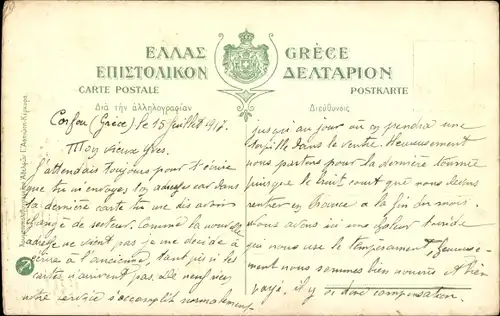 ΕΛΛΑΣ GRÈCE
ΕΠΙΣΤΟΛΙΚΟΝ ΔΕΛΤΑΡΙΟΝ
CARTE POSTALE POSTKARTE
Διὰ τὴν ἀλληλογραφίαν Διεύθυνσις
Corfou (Grèce) le 15 juillet 1917.
Mon vieux Yves.
J'attendais toujours pour t'écrire
que tu m'envoyes ton adresse car dans
ta dernière carte tu me dis avoir
changé de secteur. Comme la nouvelle
adresse ne vient pas je me décide à
écrire à l'ancienne, tant pis si tes
cartes n'arrivent pas. De neuf rien,
notre service s'accomplit normalement
jusqu'au jour où on prendra une
torpille dans le ventre. Heureusement
nous partons pour la dernière tournée
puisque le bruit court que nous devons
rentrer en France à la fin du mois.
Nous avons ici une chaleur torride
qui nous use le tempérament, heureuse-
ment nous sommes bien nourris et bien
payé. il y a donc compensation.